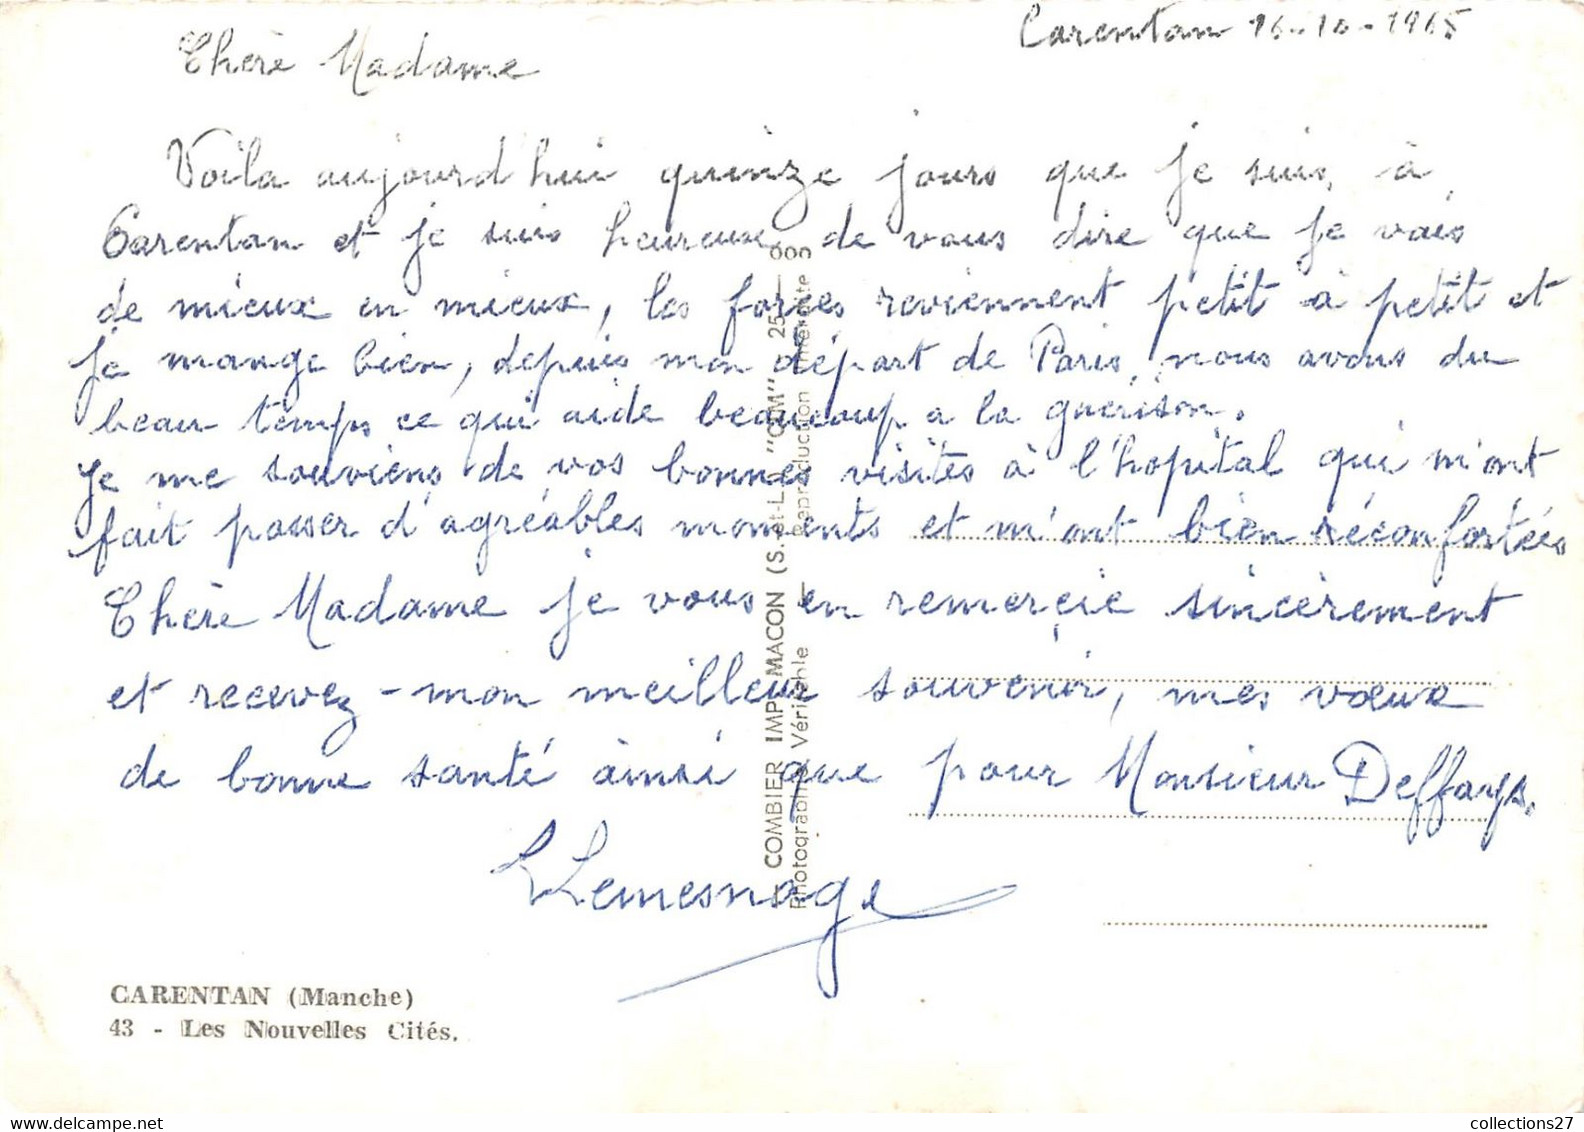 Carentan 16-10-1965
Chère Madame
Voila aujourd'hui quinze jours que je suis à
Carentan et je suis heureuse de vous dire que je vais
de mieux en mieux, les forces reviennent petit à petit et
je mange bien, depuis mon départ de Paris, nous avons du
beau temps ce qui aide beaucoup a la guerison.
Je me souviens de vos bonnes visites à l'hopital qui m'ont
fait passer d'agréables moments et m'ont bien réconfortées
Chère Madame je vous en remercie sincèrement
et recevez - mon meilleur souvenir, mes vœux
de bonne santé ainsi que pour Monsieur Deffays.
L Lemesnage
COMBIER IMP. MACON (S.-et-L.) "CIM"
Photographie Véritable - Reproduction Interdite
CARENTAN (Manche)
43 - Les Nouvelles Cités.
collections27